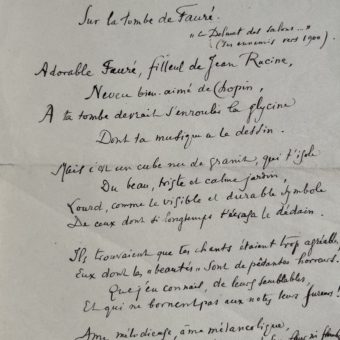 Sur la tombe de Fauré.
"Le Delmet des salons..."
(Ses ennemis vers 1900).
Adorable Fauré, filleul de Jean Racine,
Neveu bien-aimé de Chopin,
À ta tombe devrait s'enrouler la glycine
Dont ta musique a le dessin.
Mais c'est un cube nu de granit, qui t'isole
Du beau, triste et calme jardin,
Lourd, comme le visible et durable symbole
De ceux dont si longtemps t'écrasa le dédain.
Ils trouvaient que tes chants étaient trop agréables,
Eux dont les "beautés" sont de pédantes horreurs.
Que j'en connais, de leurs semblables,
Et qui ne bornent pas aux notes leurs fureurs !
Âme mélodieuse, âme mélancolique,